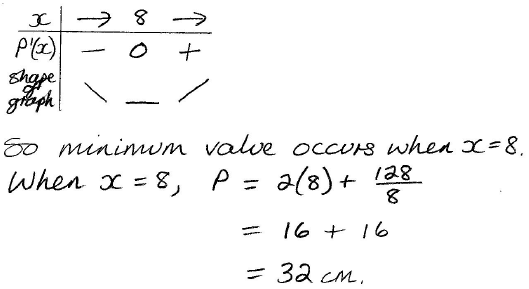 x → 8 →
P'(x) − 0 +
shape of graph \ — /
So minimum value occurs when x = 8.
When x = 8, P = 2(8) + 128/8
= 16 + 16
= 32 cm.